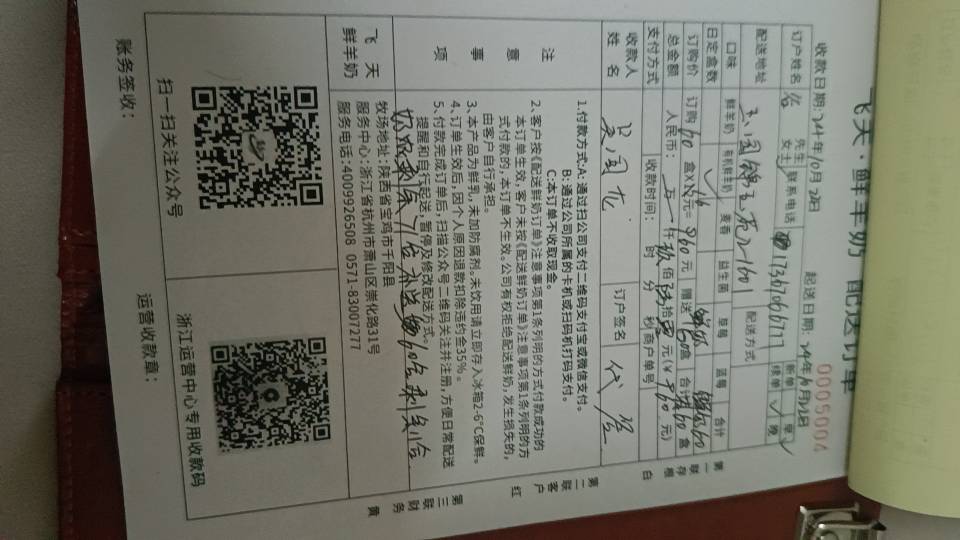 飞天·鲜羊奶 配送订单
0005004
收款日期:24年10月22日 起送日期:24年
订户姓名 先生 女士 联系电话 新单 续单 早 晚
配送地址 配送方式
口味 鲜羊奶 有机鲜羊奶 麦香 益生菌 草莓 蓝莓 合计
日定盒数
订购价 订购60盒X 元=960元 赠送 盒 合计 盒
总金额 人民币: 仟玖佰陆拾 元(¥960元)
支付方式 收款时间: 时 分 秒 商户单号
收款人姓名 订户签名
注意事项
1.付款方式:A:通过扫公司支付二维码支付宝或微信支付。
B:通过公司所属的卡机或扫码机打码支付。
C:本订单不收取现金。
2.客户按《配送鲜奶订单》注意事项第1条列明的方式付款成功的
本订单生效,客户未按《配送鲜奶订单》注意事项第1条列明的方
式付款的,本订单不生效。公司有权拒绝配送鲜奶,发生损失的,
由客户自行承担。
3.本产品为鲜乳,未加防腐剂。未饮用请立即存入冰箱2-6°C保鲜。
4.订单生效后,因个人原因退款扣除违约金35%。
5.付款完成订单后,扫描公众号二维码关注并注册,方便日常配送
提醒和自行配送,暂停及修改配送方式。
飞天鲜羊奶
牧场地址:陕西省宝鸡市千阳县
服务中心:浙江省杭州市萧山区崇化路31号
服务电话:4009926508 0571-83007277
扫一扫关注公众号
浙江运营中心专用收款码
账务签收:
运营收款章:
第一联 存根 白
第二联 客户 红
第三联 财务 黄